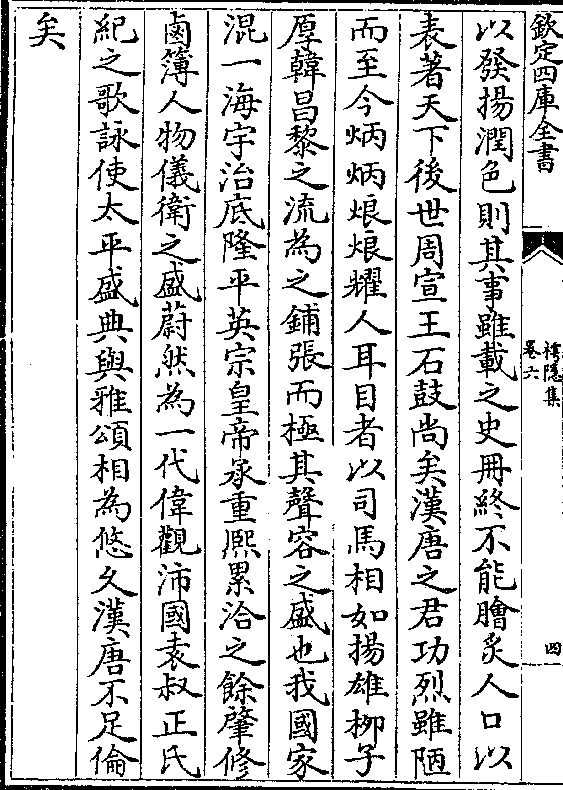 欽定四庫全書
樗隱集
卷六
四
以發揚潤色則其事雖載之史冊終不能膾炙人口以
表著天下後世周宣王石鼓尚矣漢唐之君功烈雖陋
而至今炳炳烺烺耀人耳目者以司馬相如揚雄柳子
厚韓昌黎之流為之鋪張而極其聲容之盛也我國家
混一海宇治底隆平英宗皇帝承重熙累洽之餘肇修
鹵簿人物儀衛之盛蔚然為一代偉觀沛國袁叔正氏
紀之歌詠使太平盛典與雅頌相為悠久漢唐不足倫
矣